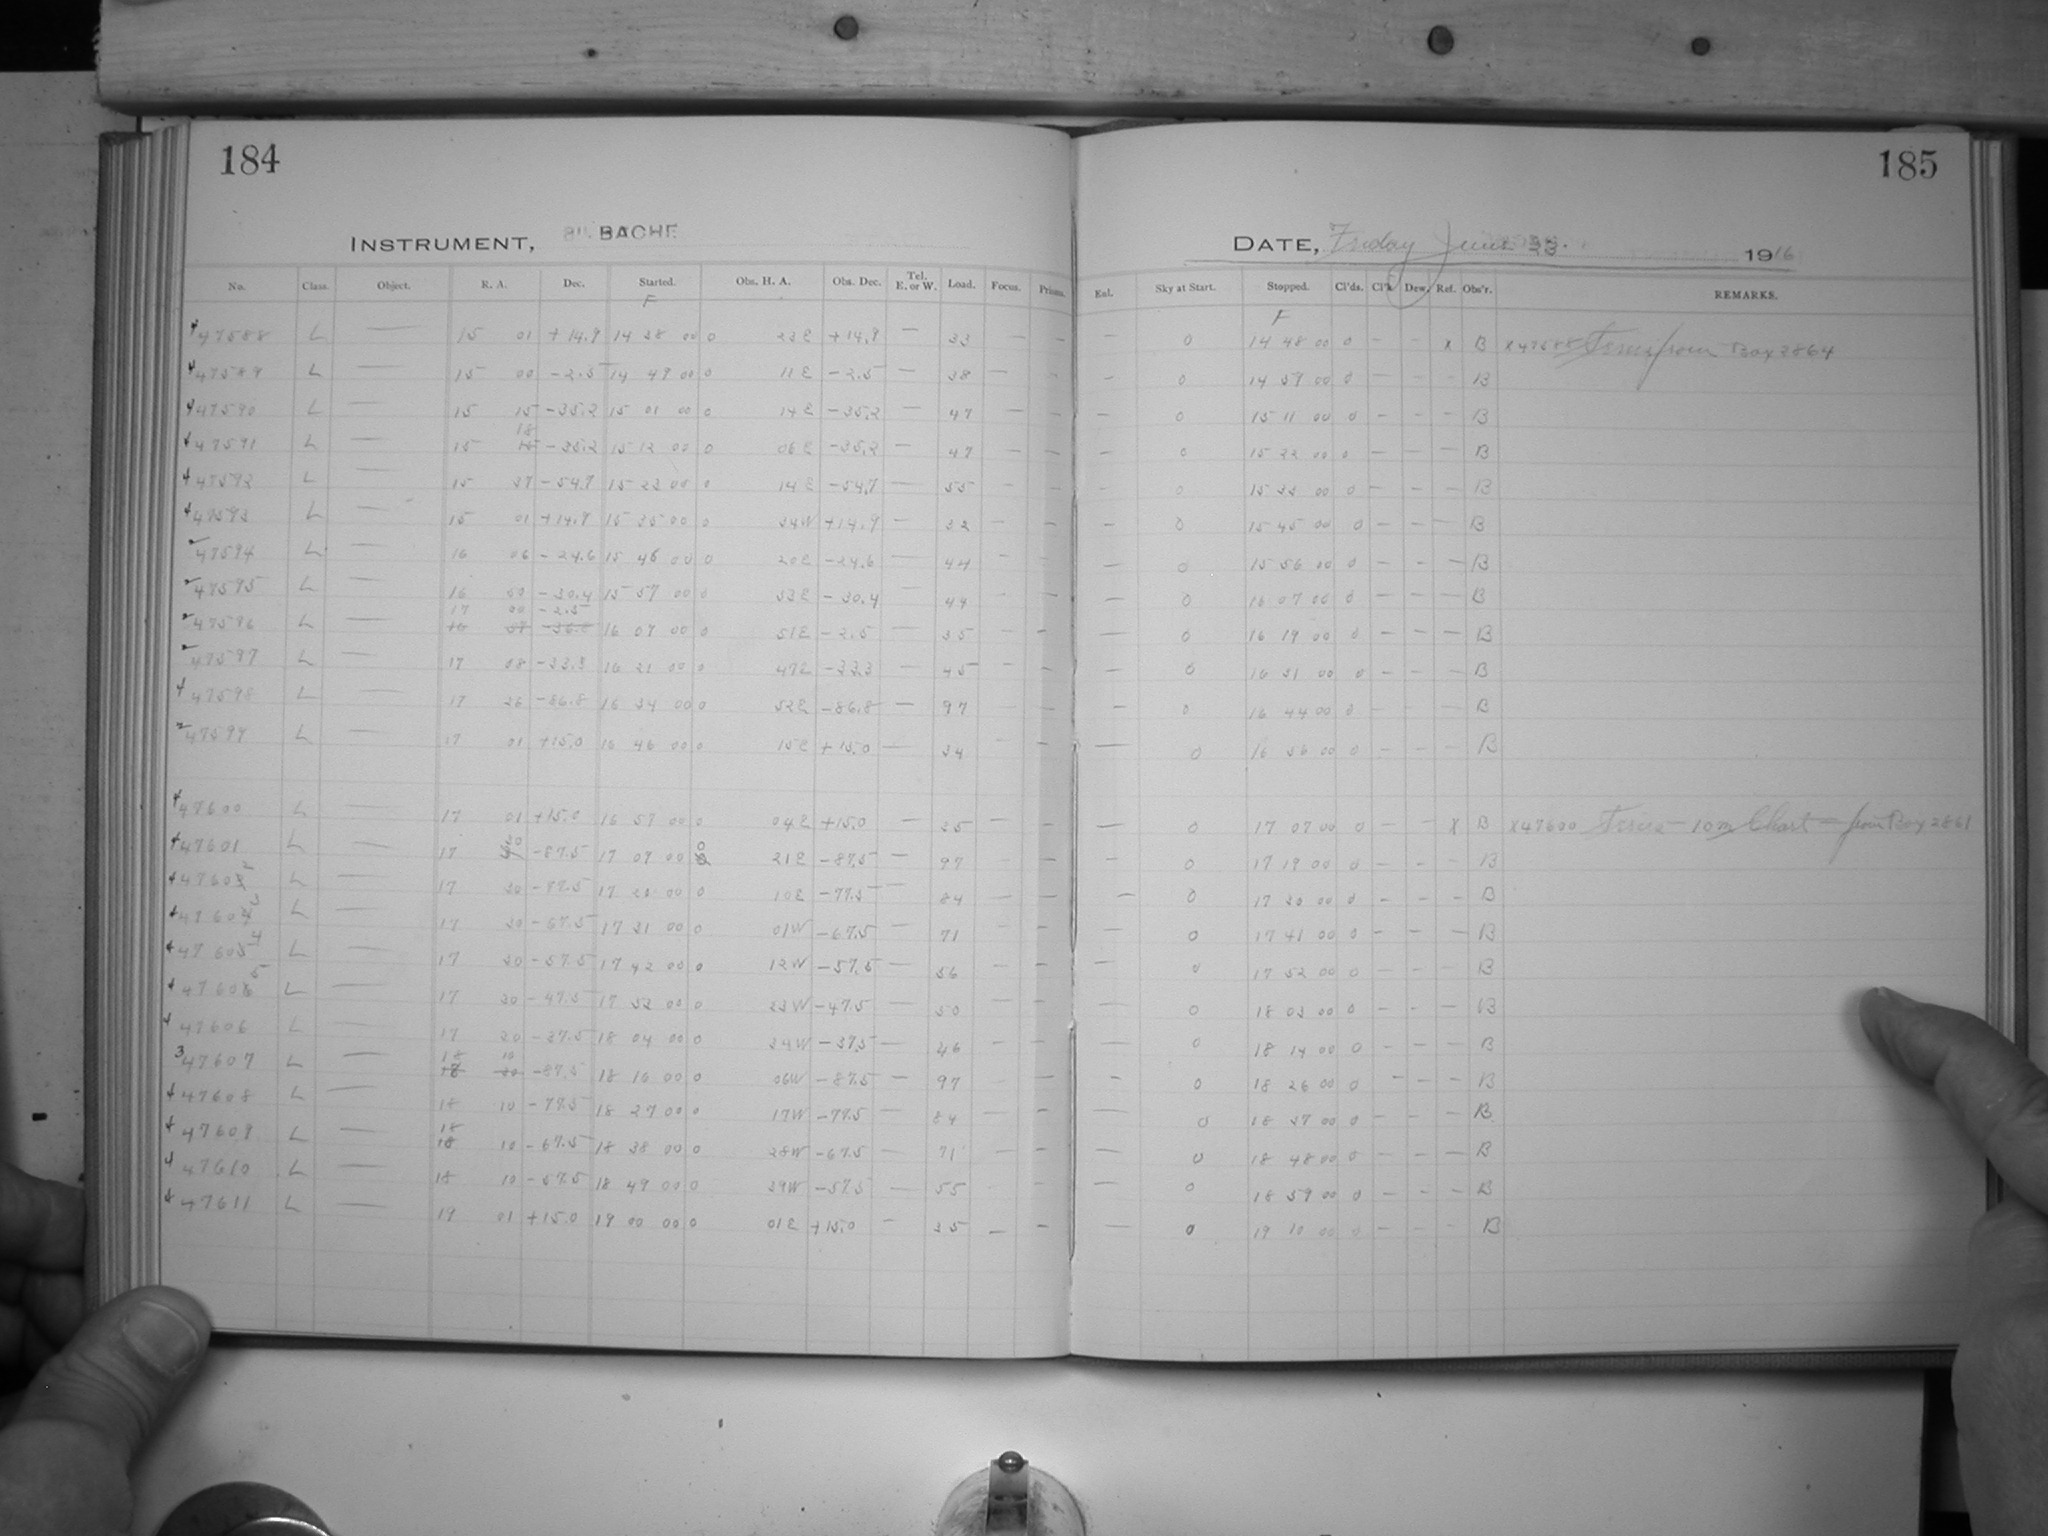 184
INSTRUMENT, BACHE
No. Class. Object. R. A. Dec. Started. Obs. H. A. Obs. Dec. Tel. E. or W. Load. Focus. Prisms.
F
47588 L — 15 01 +14.9 14 38 00 0 23E +14.9 — 33 — —
47589 L — 15 00 -2.5 14 49 00 0 11E -2.5 — 38 — —
47590 L — 15 15 -35.2 15 01 00 0 14E -35.2 — 47 — —
47591 L — 15 18 -35.2 15 12 00 0 06E -35.2 — 47 — —
47592 L — 15 37 -54.7 15 23 00 0 14E -54.7 — 55 — —
47593 L — 15 01 +14.9 15 35 00 0 34W +14.9 — 32 — —
47594 L — 16 06 -24.6 15 46 00 0 20E -24.6 — 44 — —
47595 L — 16 50 -30.4 15 57 00 0 53E -30.4 — 44 — —
47596 L — 17 00 -2.5 16 09 00 0 51E -2.5 — 35 — —
47597 L — 17 08 -33.3 16 21 00 0 47E -33.3 — 45 — —
47598 L — 17 26 -86.8 16 34 00 0 52E -86.8 — 97 — —
47599 L — 17 01 +15.0 16 46 00 0 15E +15.0 — 34 — —
47600 L — 17 01 +15.0 16 57 00 0 04E +15.0 — 35 — —
47601 L — 17 30 -87.5 17 09 00 0 21E -87.5 — 97 — —
47602 L — 17 30 -77.5 17 20 00 0 10E -77.5 — 84 — —
47603 L — 17 30 -67.5 17 31 00 0 01W -67.5 — 71 — —
47604 L — 17 30 -57.5 17 42 00 0 12W -57.5 — 56 — —
47605 L — 17 30 -47.5 17 53 00 0 23W -47.5 — 50 — —
47606 L — 17 30 -37.5 18 04 00 0 34W -37.5 — 46 — —
47607 L — 18 10 -87.5 18 16 00 0 06W -87.5 — 97 — —
47608 L — 18 10 -77.5 18 27 00 0 17W -77.5 — 84 — —
47609 L — 18 10 -67.5 18 38 00 0 28W -67.5 — 71 — —
47610 L — 18 10 -57.5 18 49 00 0 39W -57.5 — 55 — —
47611 L — 19 01 +15.0 19 00 00 0 01E +15.0 — 35 — —
185
DATE, Friday June 23. 1916
Enl. Sky at Start. Stopped. Cl'ds. Cl'r. Dew. Ref. Obs'r. REMARKS.
F
— 0 14 48 00 0 — — x B x47588 from Box 2864
— 0 14 59 00 0 — — — B
— 0 15 11 00 0 — — — B
— 0 15 22 00 0 — — — B
— 0 15 33 00 0 — — — B
— 0 15 45 00 0 — — — B
— 0 15 56 00 0 — — — B
— 0 16 07 00 0 — — — B
— 0 16 19 00 0 — — — B
— 0 16 31 00 0 — — — B
— 0 16 44 00 0 — — — B
— 0 16 56 00 0 — — — B
— 0 17 07 00 0 — — x B x47600 — 10m Chart — from Box 2861
— 0 17 19 00 0 — — — B
— 0 17 30 00 0 — — — B
— 0 17 41 00 0 — — — B
— 0 17 52 00 0 — — — B
— 0 18 03 00 0 — — — B
— 0 18 14 00 0 — — — B
— 0 18 26 00 0 — — — B
— 0 18 37 00 0 — — — B
— 0 18 48 00 0 — — — B
— 0 18 59 00 0 — — — B
— 0 19 10 00 0 — — — B